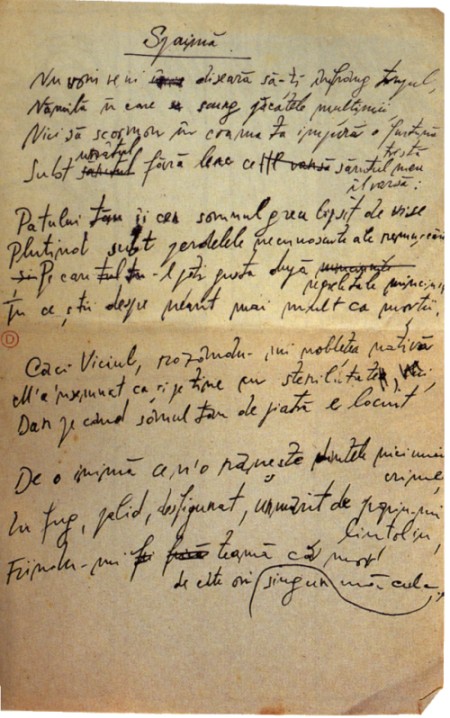 Spaimă
Nu voiu veni diseară să-ți înfrâng trupul,
în care se scurg păcatele mulțimii
Nici să scormon în coama ta impură o furtună
tristă
Subt fără leac ce sărutul meu
îl varsă:
Patului tău îi cer somnul greu lipsit de vise
Plutind subt perdelele necunoscute ale remușcării
Pe care -l poți gusta după
Tu ce știi despre neant mai mult ca morții.
Căci Viciul, rozându-mi noblețea nativă
M'a însemnat ca și pe tine cu sterilitatea lui,
Dar pe când sânul tău de piatră e locuit
De o inimă ce n'o rănește dintele nici unei
crime,
Eu fug, palid, desfigurat, urmărit de propriu-mi
lințoliu,
teamă că mor
de câte ori singur mă culc.